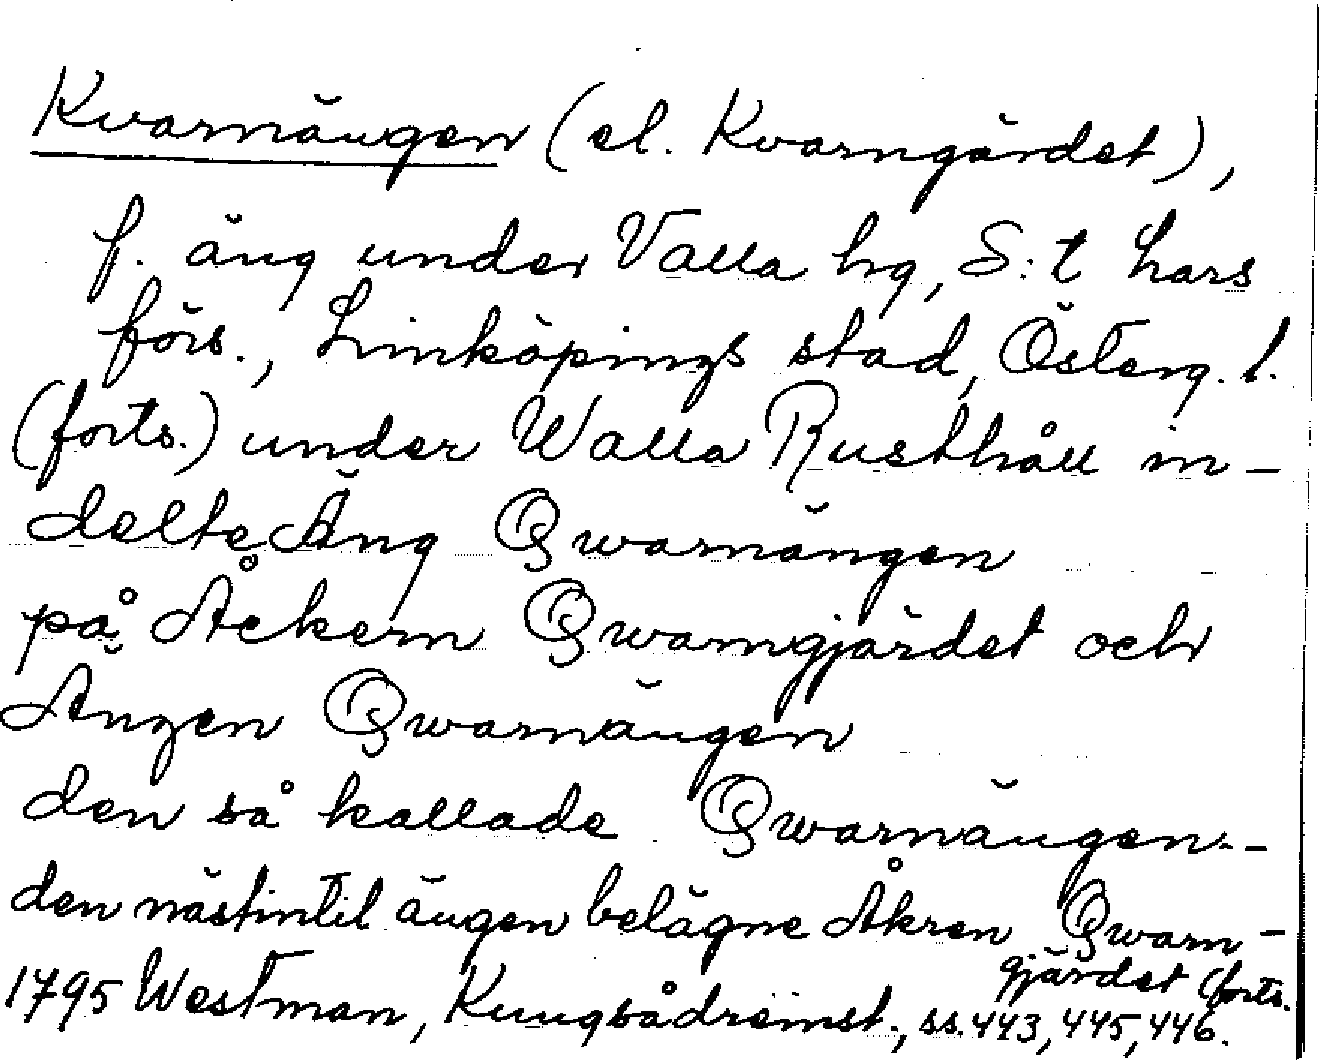 Kvarnängen (el. Kvarngärdet),
f. äng under Valla hg, S:t Lars
förs., Linköpings stad, Österg. l.
(forts.) under Walla Rusthåll in-
delte Äng Qwarnängen
på Åckern Qwarngjärdet och
Angen Qwarnängen
den så kallade Qwarnängen --
den nästintil ängen belägne Åkren Qwarn-
gjärdet (forts.
1795 Westman, Kungsådreinst., ss. 443, 445, 446.